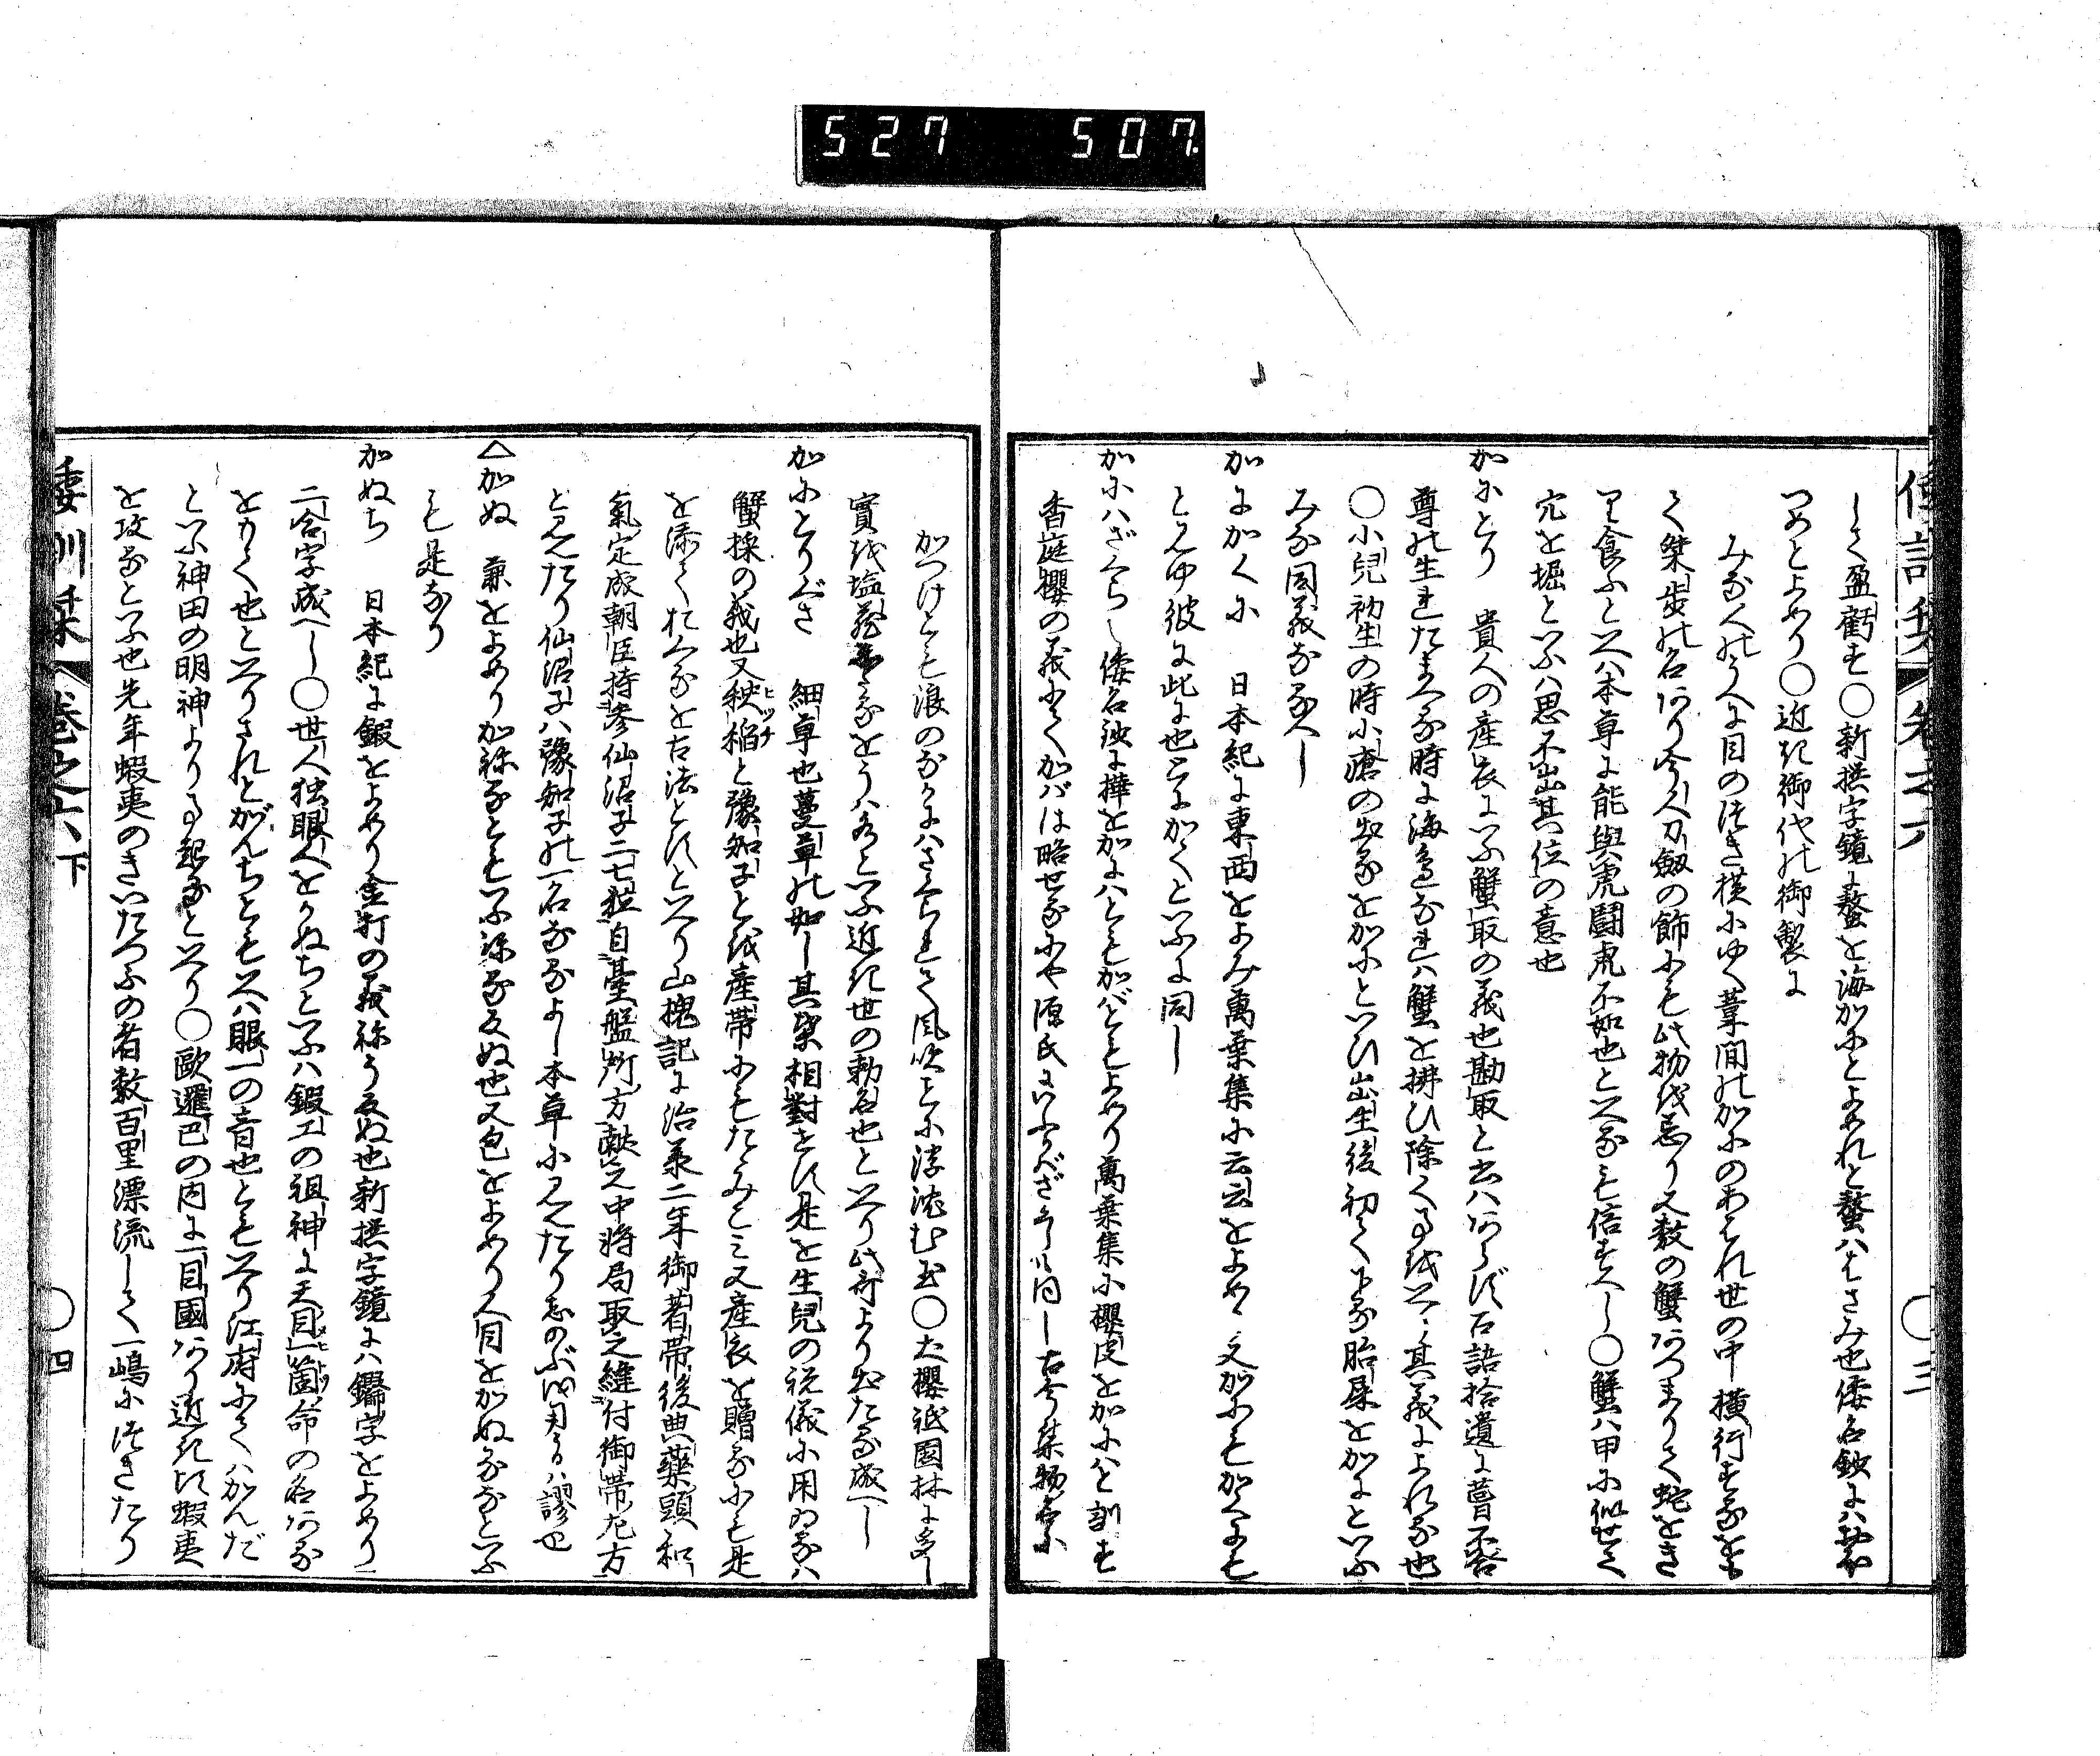 527 507.
倭訓栞 巻之六 〇三
して盈虧す〇新撰字鏡に螯を海かにとよめれと螯ハはさみ也倭名鈔にハ
つめとよめり〇近き御代の御製に
みな人のうへに目のつき横にゆく葦間のかにのあはれ世の中 横行するをも
て桀歩の名あり今人刀劔の飾にも此物を忌り又数の蟹あつまりて蛇をき
り食ふといへハ本草に能與虎闘虎不如也といへるも信すへし〇蟹ハ甲に似せて
穴を堀といふハ思不出其位の意也
かにとり 貴人の産衣にいふ蟹取の義也勘取と云ハあらず古語拾遺に葺不合
尊の生れたまへる時に海邊なれハ蟹を掃ひ除く事をいへり其義によれる也
〇小兒初生の時小瘡の出るをかにといひ出生後初て下る胎屎をかにといふ
みな同義なるへし
かにかくに 日本紀に東西をよみ萬葉集に云云をよめり又かにもかくにも
と見ゆ彼に此に也とにかくといふに同し
かにハざくら 倭名鈔に樺をかにハともかバともよめり萬葉集に櫻皮をかにハと訓す
香庭櫻の義にてかバは略せるにや源氏にかばざくらハ同し古今集物名に
かつけとも浪のなかにハさくられて風吹ことに浮沈む玉〇大櫻祇園林に多し
實を塩蔵するをうハみといふ近き世の勅名也といへり此哥より出たる成へし
かにとりぐさ 細草也蔓草の如し其葉相對せり是を生兒の祝儀に用ゐるハ
蟹採の義也又秧稲と豫知子とを産帯にもたゝみこミ又産衣を贈るにも是
を添てたへるを古法とすといへり山槐記に治承二年御著帯後典薬頭和
氣定成朝臣持参仙沼子二七粒自臺盤所方献之中将局取之縫付御帯左方
と見えたり仙沼子ハ豫知子の一名なるよし本草に見えたりしのぶを用るハ謬也
〈かぬ 兼をよめりか祢るともいふ祢る反ぬ也又包をよめり人目をかぬるなといふ
も是なり
かぬち 日本紀に鍜をよめり金打の義祢う反ぬ也新撰字鏡にハ鑷字をよめり
二合字成へし〇世人独眼人をかぬちといふハ鍜工の祖神に天目一箇命の名ある
をもて也といへりされとがんちともいへハ眼一の音也ともいへり江府にてハかんだ
といふ神田の明神より事起るといへり〇歐邏巴の内に一目國あり近き頃蝦夷
を攻るといふ也先年蝦夷のきいたつふの者数百里漂流して一嶋につきたり
倭訓栞 巻之六下 〇四